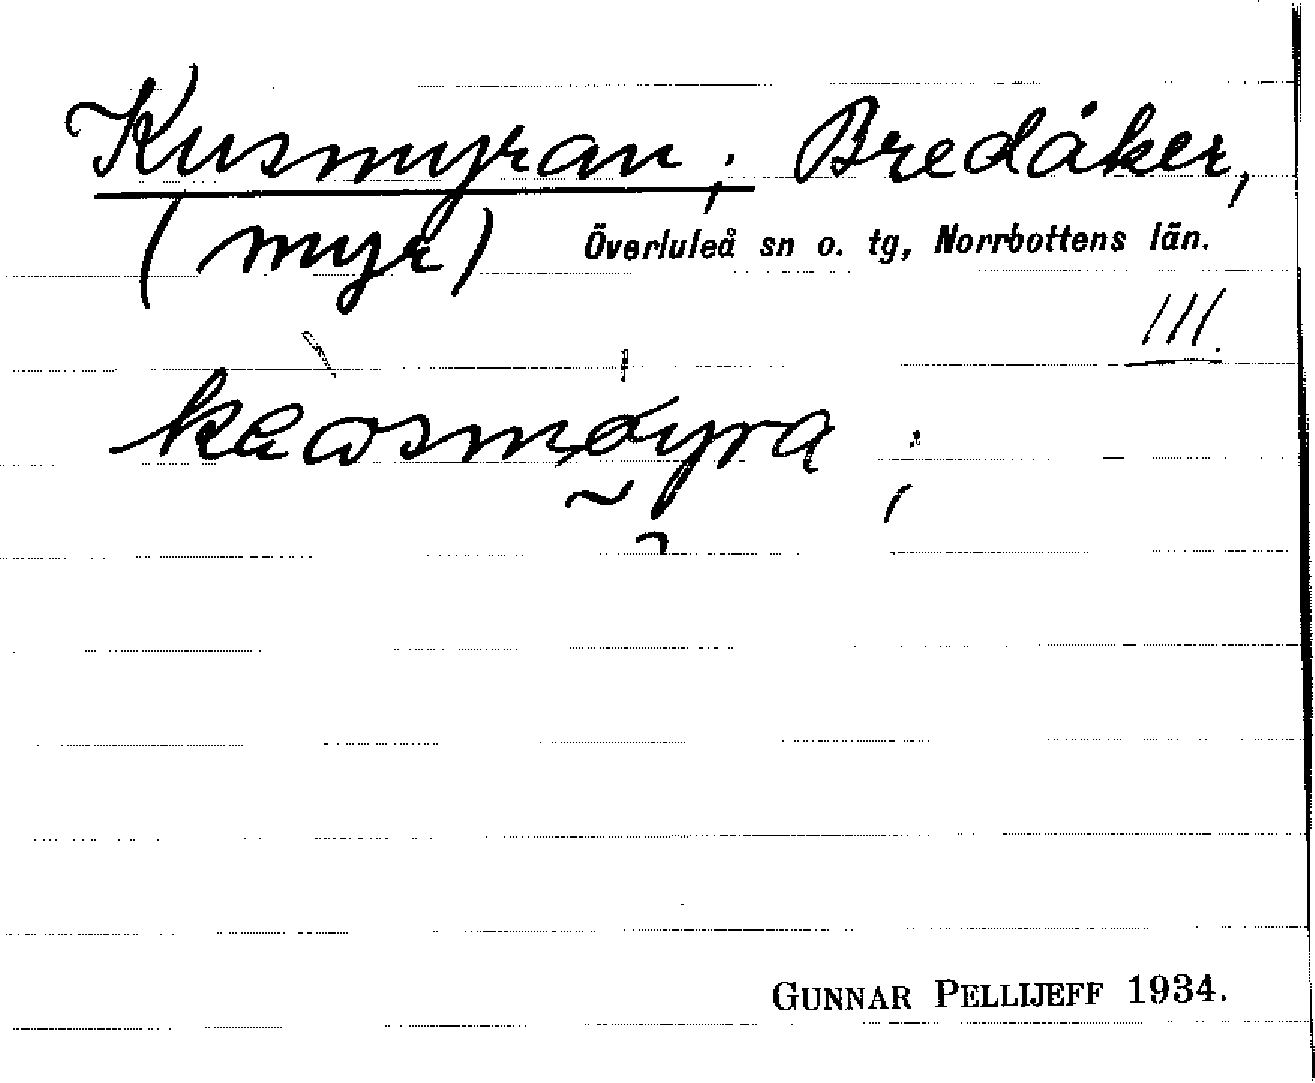 Kusmyran; Bredåker,
(myr) Överluleå sn o. tg, Norrbottens län.
111.
GUNNAR PELLIJEFF 1934.